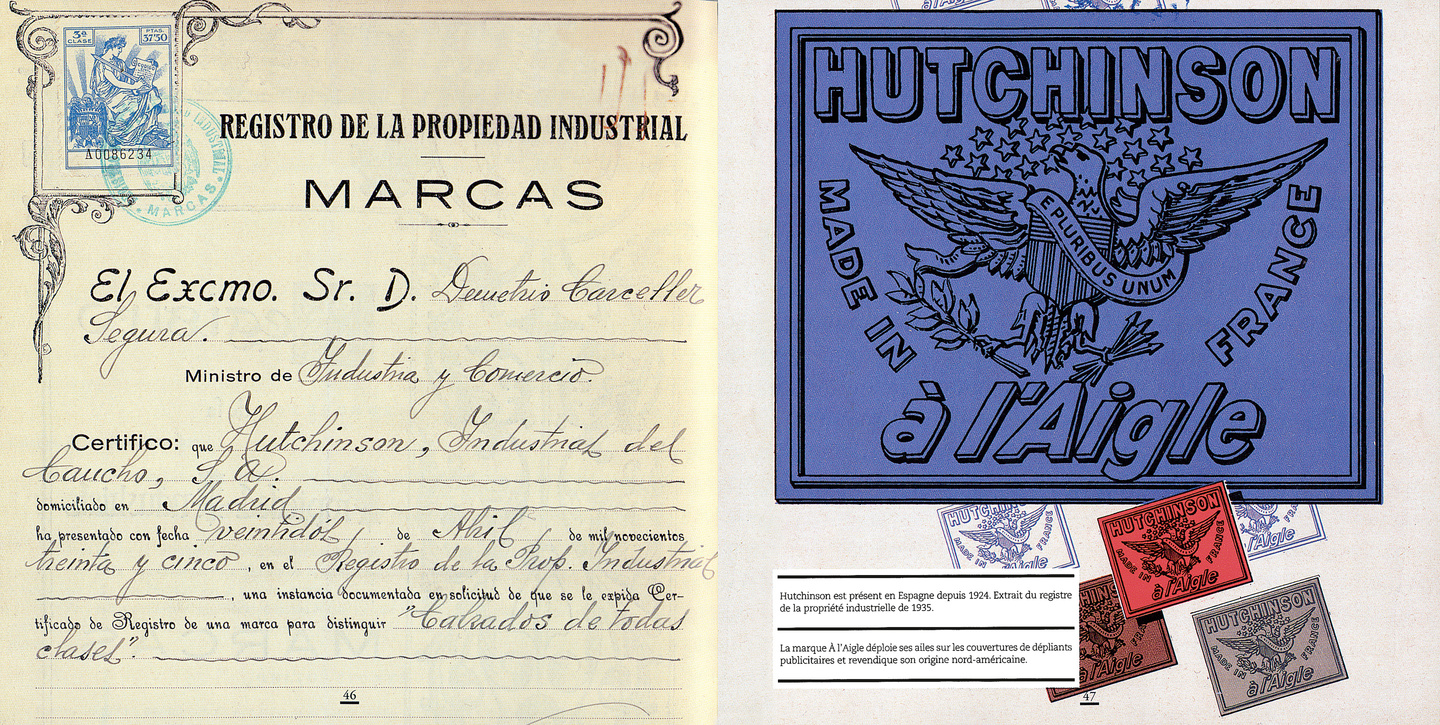 3ª
CLASE
PTAS.
37'50
A0086234
MARCAS
REGISTRO DE LA PROPIEDAD INDUSTRIAL
MARCAS
El Excmo. Sr. D. Demetrio Carceller
Segura.
Ministro de Industria y Comercio.
Certifico: que Hutchinson, Industrias del
Caucho, S. A.
domiciliado en Madrid
ha presentado con fecha veintidós de Abril de mil novecientos
treinta y cinco, en el Registro de la Prop. Industrial
, una instancia documentada en solicitud de que se le expida Cer-
tificado de Registro de una marca para distinguir "Calzados de todas
clases".
46
à l'Aigle
HUTCHINSON
E PLURIBUS UNUM
MADE IN
FRANCE
à l'Aigle
HUTCHINSON
MADE IN
FRANCE
à l'Aigle
HUTCHINSON
MADE IN
FRANCE
à l'Aigle
HUTCHINSON
MADE IN
FRANCE
à l'Aigle
Hutchinson est présent en Espagne depuis 1924. Extrait du registre
de la propriété industrielle de 1935.
La marque À l'Aigle déploie ses ailes sur les couvertures de dépliants
publicitaires et revendique son origine nord-américaine.
47